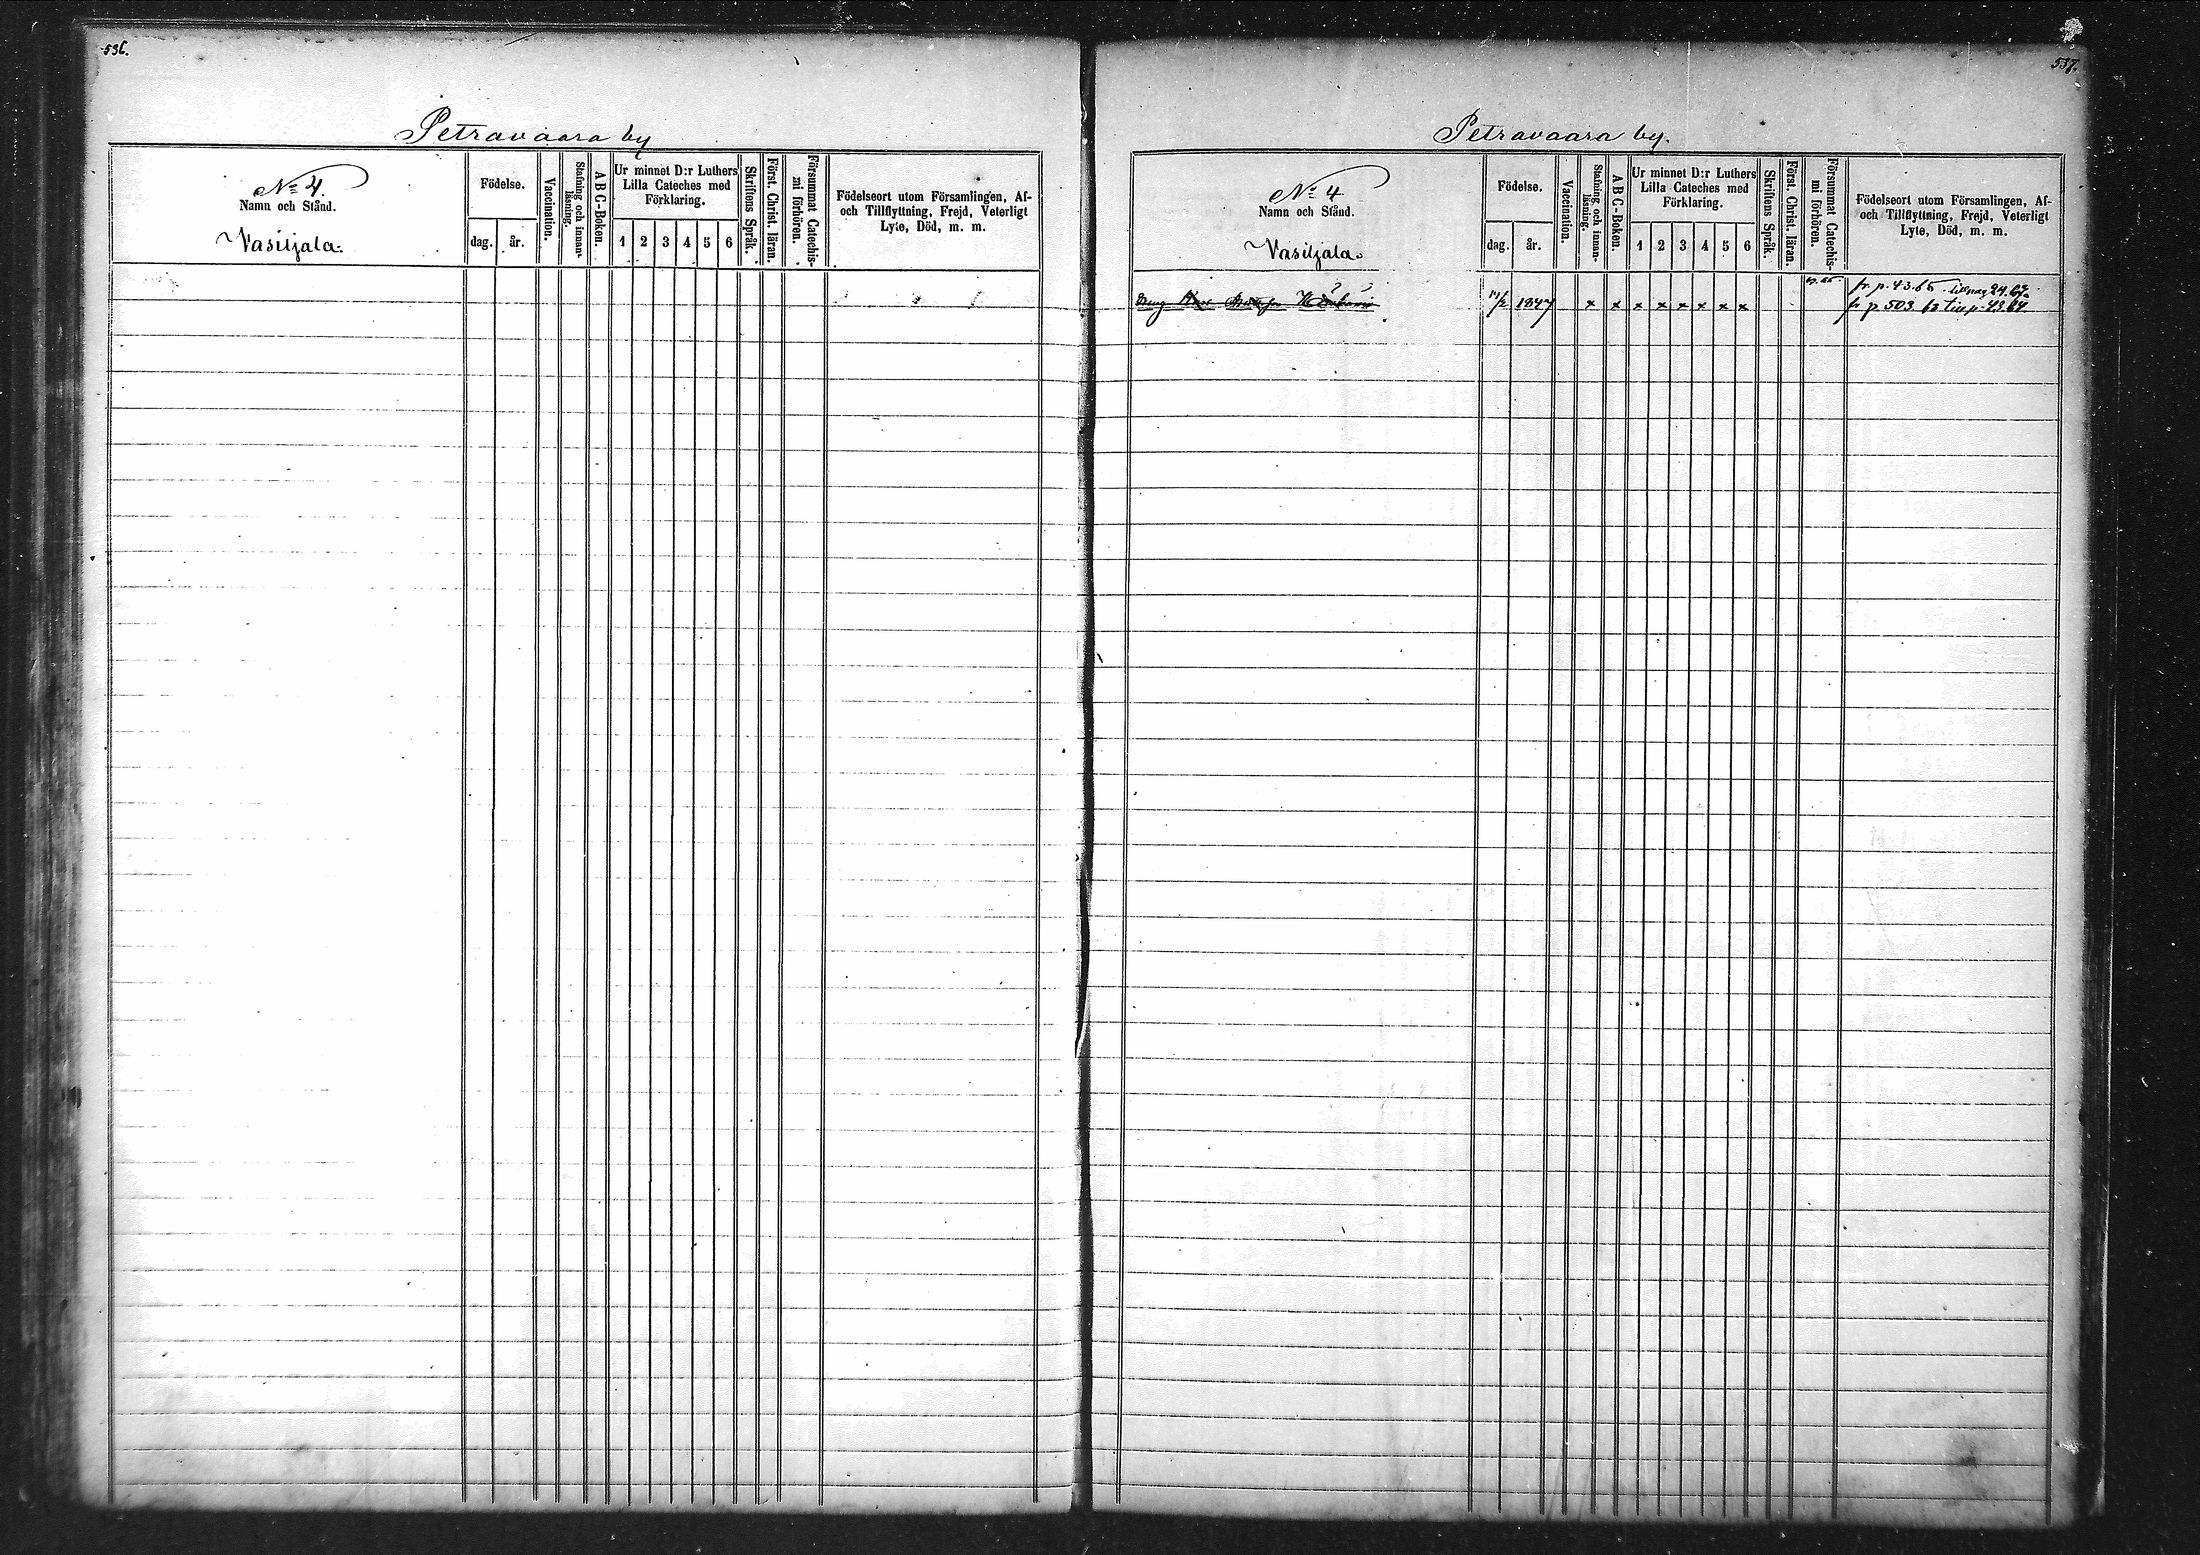 536.
Petravaara by
No 4.
Namn och Stånd.
Vasiljala.
Födelse.
dag.
år.
Vaccination.
Stafning och innan-
läsning.
A B C-Boken.
Ur minnet D:r Luthers
Lilla Cateches med
Förklaring.
1 2 3 4 5 6
Skriftens Språk.
Först. Christ. läran.
Försummat Catechis-
mi förhören.
Födelseort utom Församlingen, Af-
och Tillflyttning, Frejd, Veterligt
Lyte, Död, m. m.
537.
Petravaara by.
No 4
Namn och Stånd.
Vasiljala.
Födelse.
dag.
år.
Vaccination.
Stafning och innan-
läsning.
A B C-Boken.
Ur minnet D:r Luthers
Lilla Cateches med
Förklaring.
1 2 3 4 5 6
Skriftens Språk.
Först. Christ. läran.
Försummat Catechis-
mi förhören.
Födelseort utom Församlingen, Af-
och Tillflyttning, Frejd, Veterligt
Lyte, Död, m. m.
fr. p. 43.65
1847 x x x x x x x x fr p 503. 63 till p. 43.64.